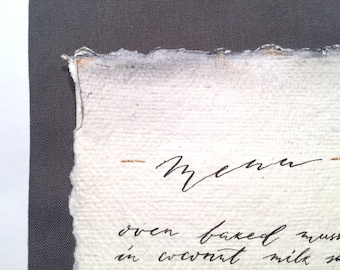 - Menu -
oven baked muss
in coconut milk s